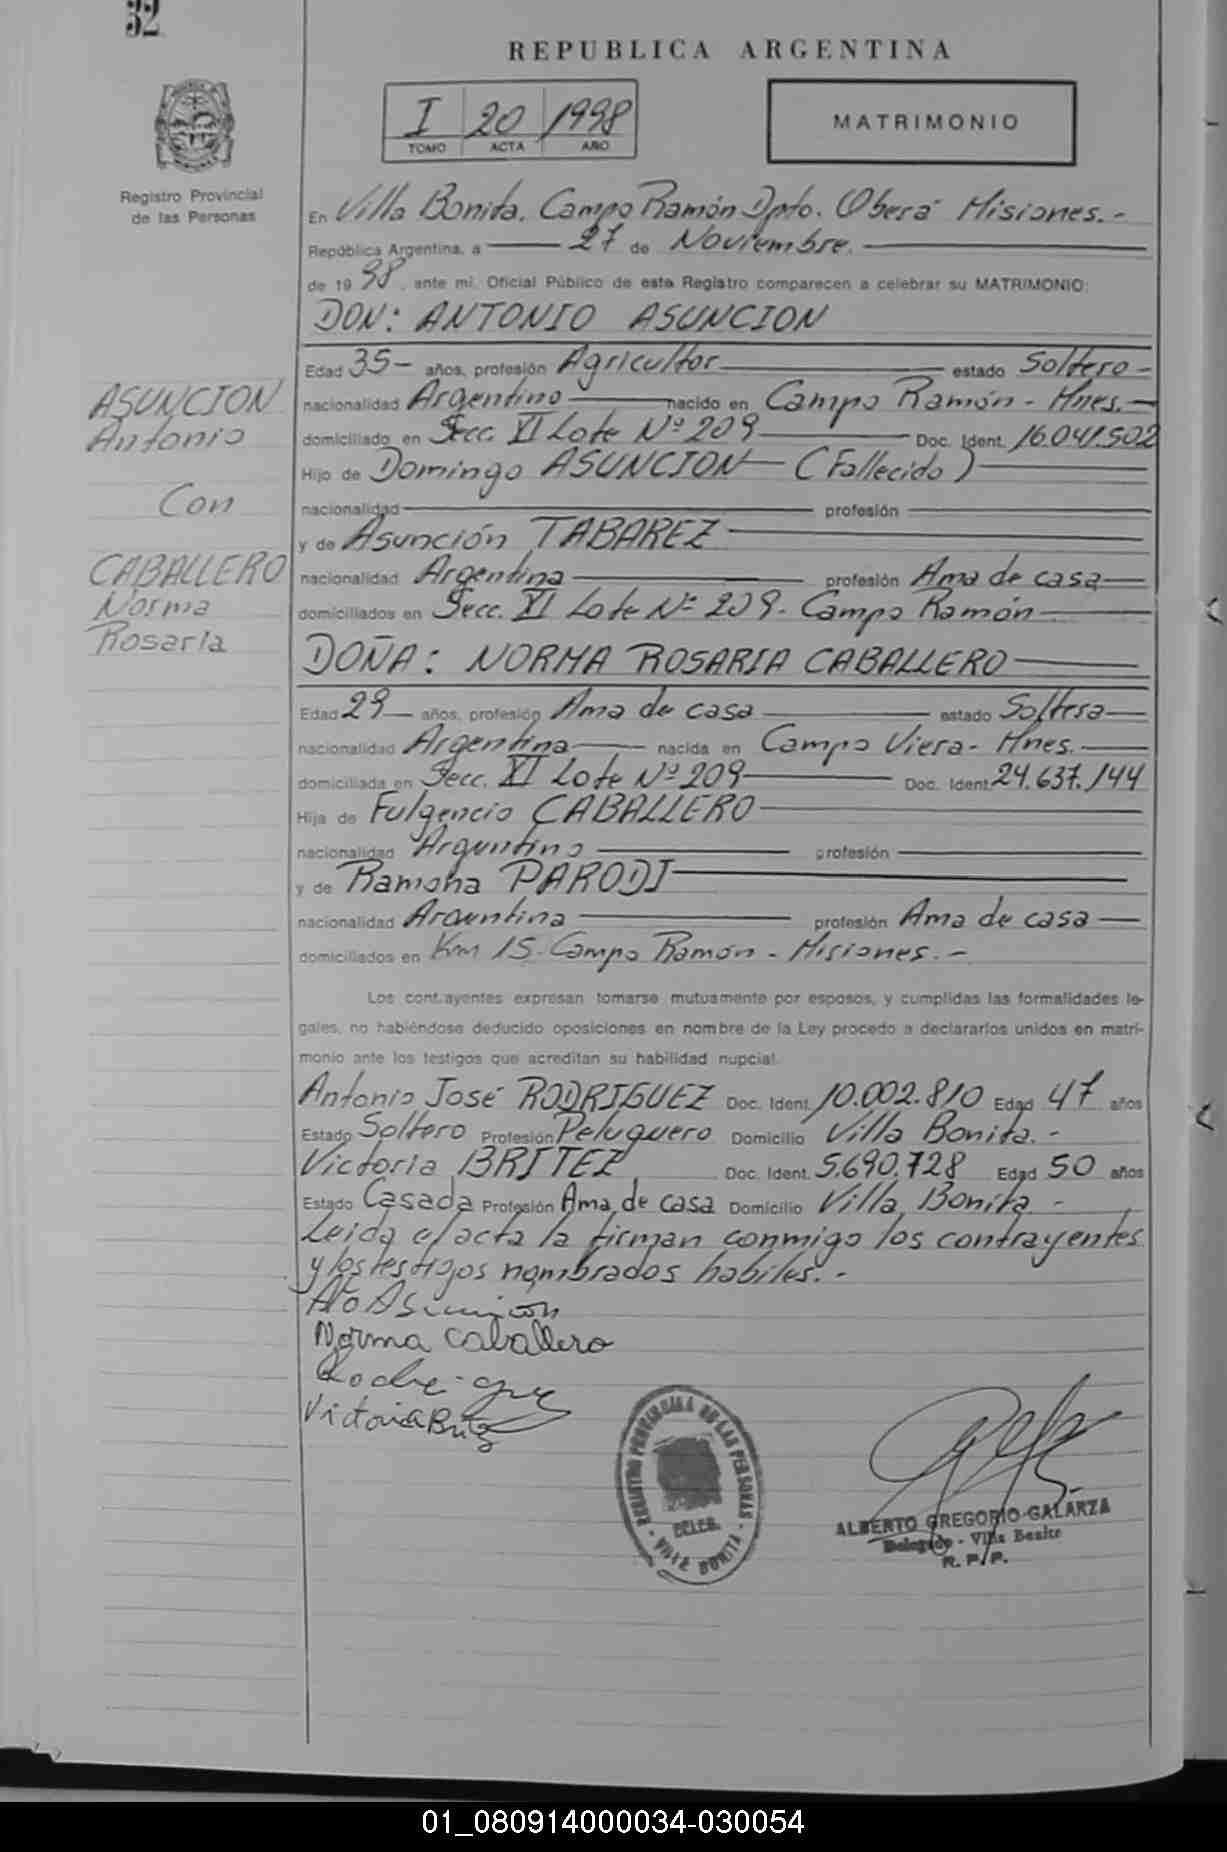 32
REPUBLICA ARGENTINA
I 20 1998
TOMO ACTA AÑO
MATRIMONIO
Registro Provincial
de las Personas
En Villa Bonita. Campo Ramón Dpto. Oberá Misiones.-
República Argentina, a 27 de Noviembre.
de 1998, ante mí, Oficial Público de este Registro comparecen a celebrar su MATRIMONIO:
DON: ANTONIO ASUNCION
Edad 35- años, profesión Agricultor estado Soltero-
nacionalidad Argentino nacido en Campo Ramón - Mnes.-
domiciliado en Secc. XI Lote Nº 209 Doc. Ident. 16.041.502
Hijo de Domingo ASUNCION (Fallecido)
nacionalidad profesión
y de Asunción TABAREZ
nacionalidad Argentina profesión Ama de casa
domiciliados en Secc. XI Lote Nº 209- Campo Ramón
ASUNCION
Antonio
Con
CABALLERO
Norma
Rosaria
DOÑA: NORMA ROSARIA CABALLERO
Edad 29 años, profesión Ama de casa estado Soltera
nacionalidad Argentina nacida en Campo Viera- Mnes.
domiciliada en Secc. XI Lote Nº 209 Doc. Ident. 24.637.144
Hija de Fulgencio CABALLERO
nacionalidad Argentino profesión
y de Ramona PARODI
nacionalidad Argentina profesión Ama de casa
domiciliados en Km 15- Campo Ramón - Misiones.-
Los contrayentes expresan tomarse mutuamente por esposos, y cumplidas las formalidades le-
gales, no habiéndose deducido oposiciones en nombre de la Ley procedo a declararlos unidos en matri-
monio ante los testigos que acreditan su habilidad nupcial.
Antonio José RODRIGUEZ Doc. Ident. 10.002.810 Edad 47 años
Estado Soltero Profesión Peluquero Domicilio Villa Bonita.-
Victoria BRITEZ Doc. Ident. 5.690.728 Edad 50 años
Estado Casada Profesión Ama de casa Domicilio Villa Bonita -
Leida el acta la firman conmigo los contrayentes
y los testigos nombrados habiles.-
Ato Asuncion
Norma Caballero
Rodriguez
Victoria Britez
REGISTRO PROVINCIAL DE LAS PERSONAS
DELEG.
VILLA BONITA
ALBERTO GREGORIO GALARZA
Delegado - Villa Bonita
R. P. P.
01_080914000034-030054